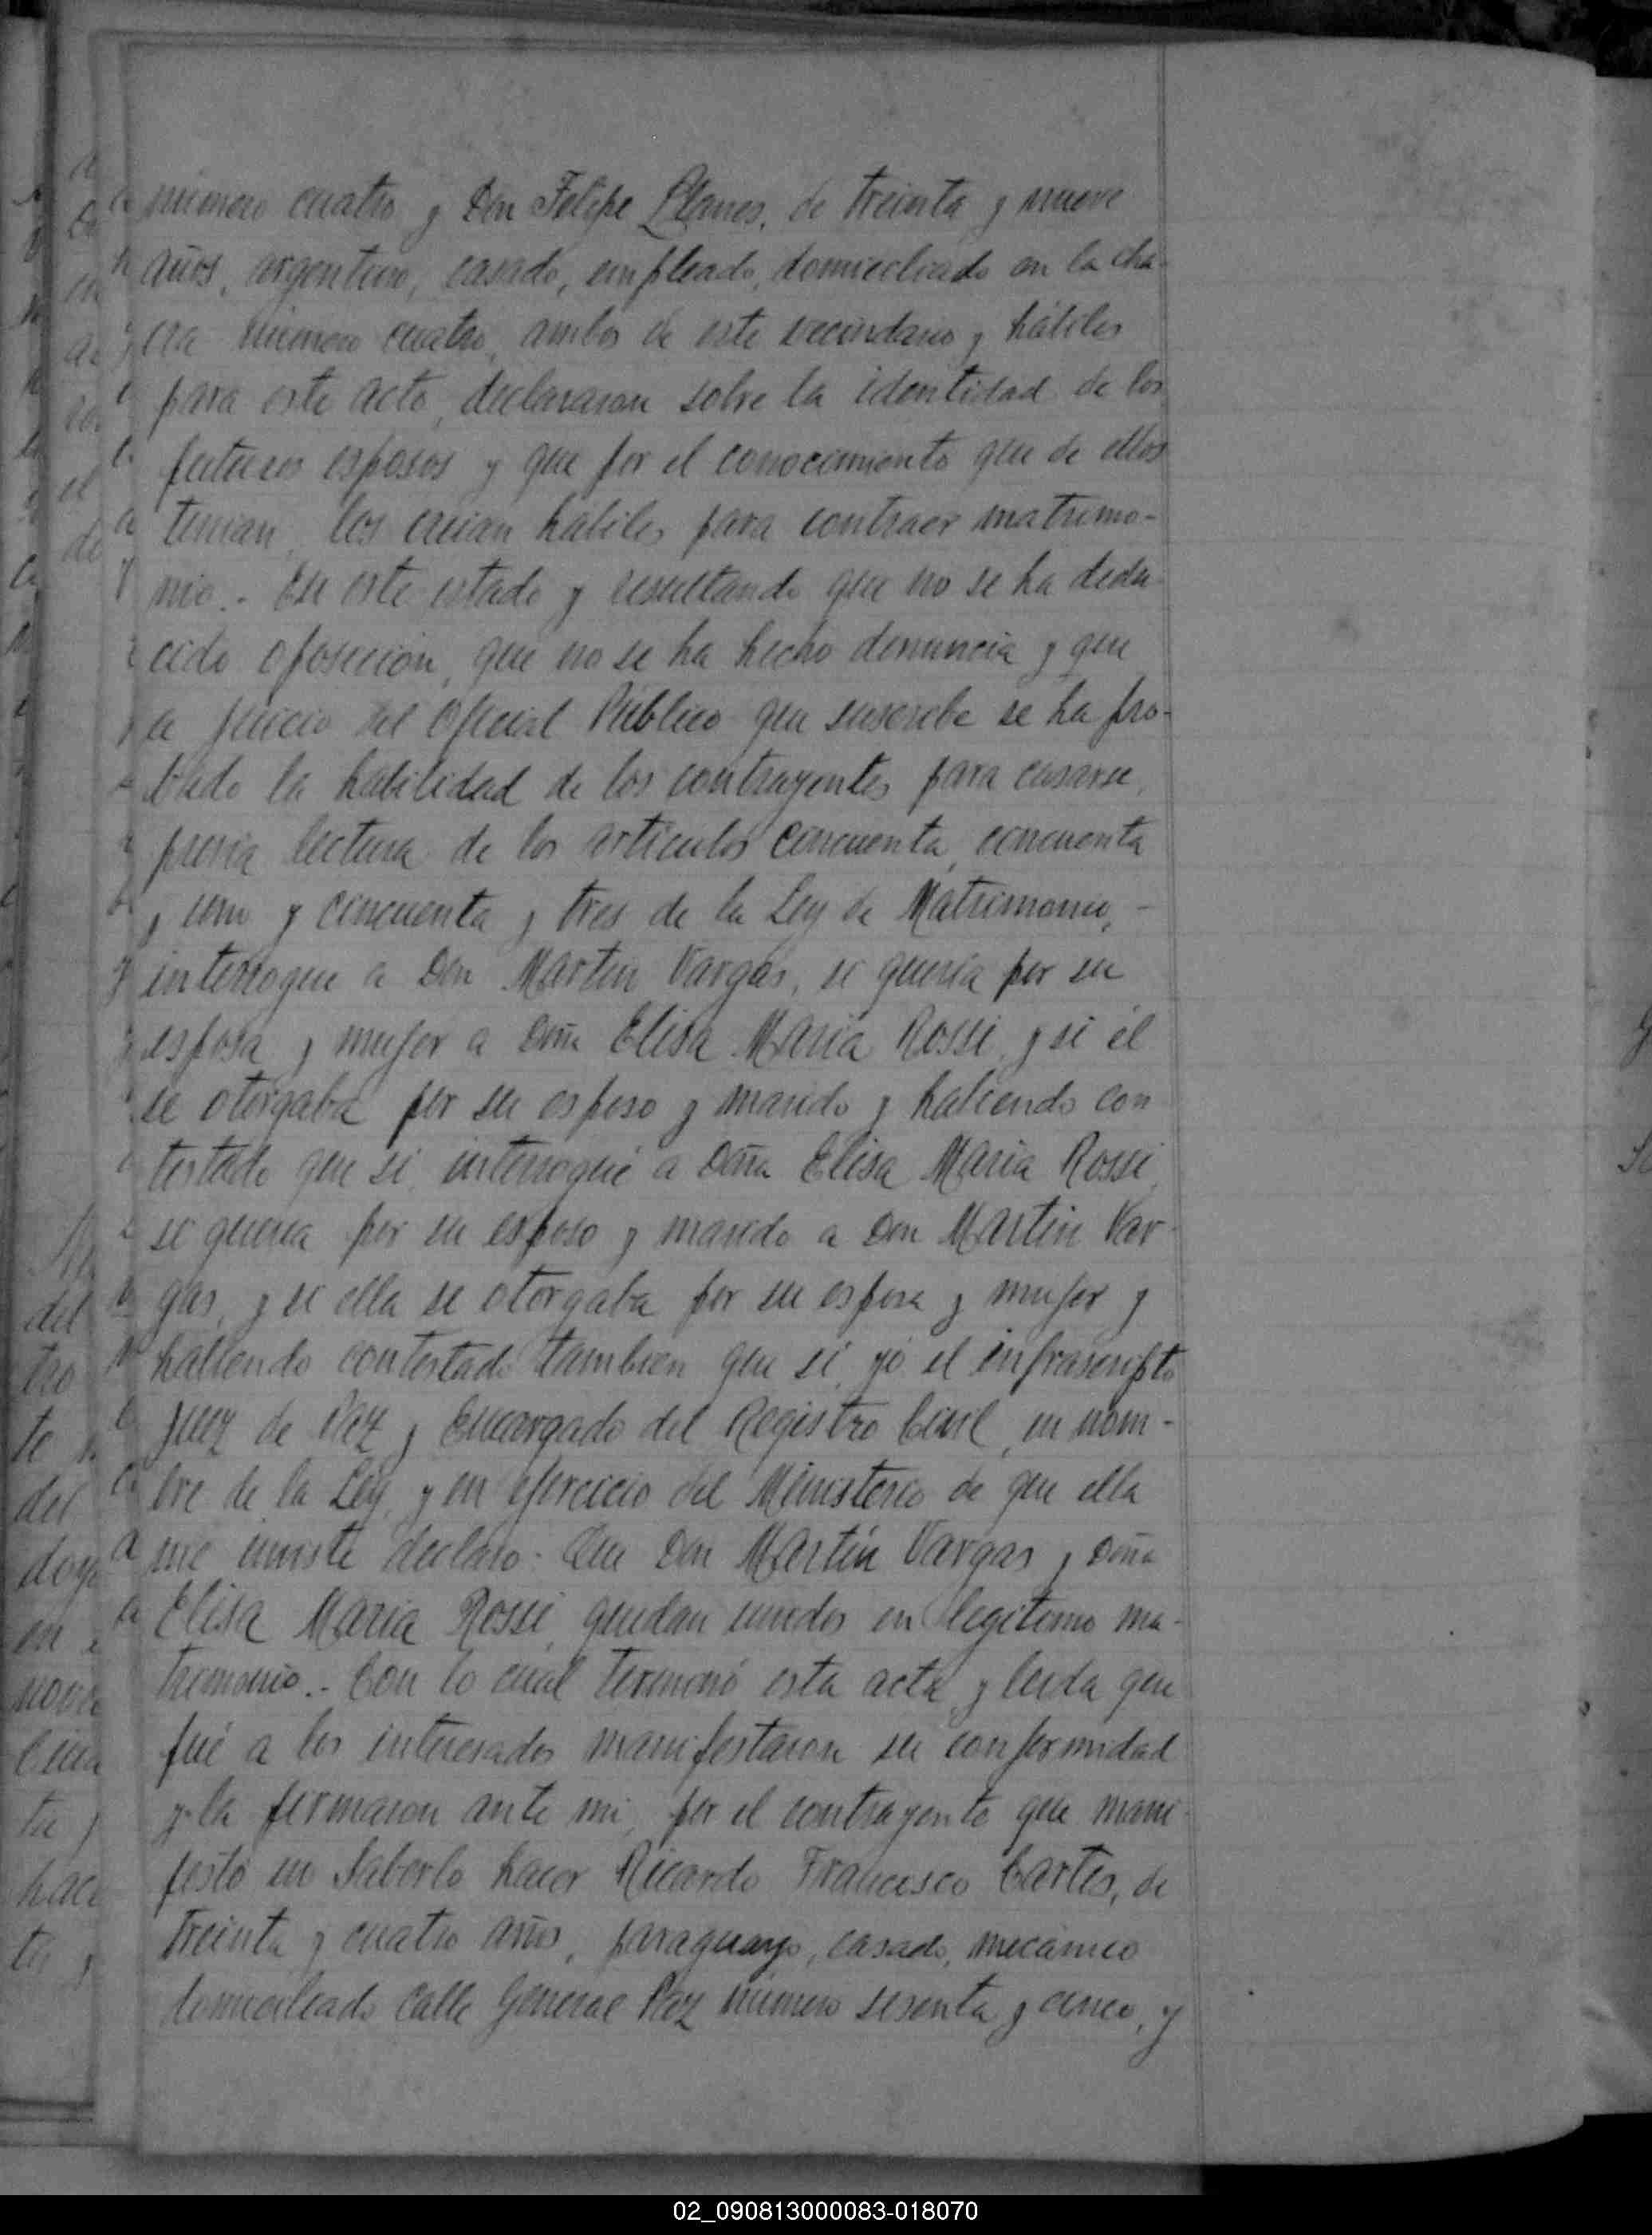 número cuatro y Don Felipe Llanes, de treinta y nueve
años, argentino, casado, empleado, domiciliado en la cha-
cra número cuatro, ambos de este vecindario y hábiles
para este acto, declararon sobre la identidad de los
futuros esposos y que por el conocimiento que de ellos
tenian, los creian hábiles para contraer matrimo-
nio.- En este estado y resultando que no se ha dedu-
cido oposición, que no se ha hecho denuncia y que
a juicio del Oficial Público que suscribe se ha pro-
bado la habilidad de los contrayentes para casarse,
previa lectura de los artículos cincuenta, cincuenta
y uno y cincuenta y tres de la Ley de Matrimonio, -
interrogue a Don Martin Vargas, si queria por su
esposa y mujer a Doña Elisa Maria Rossi, y si él
se otorgaba por su esposo y marido y habiendo con
testado que si, interrogué a Doña Elisa Maria Rossi,
si queria por su esposo y marido a Don Martin Var-
gas, y si ella se otorgaba por su esposa y mujer y
habiendo contestado tambien que si, yo el infrascripto
Juez de Paz y Encargado del Registro Civil, en nom-
bre de la Ley, y en ejercicio del Ministerio de que ella
me inviste declaro: Que Don Martín Vargas y Doña
Elisa Maria Rossi, quedan unidos en legitimo ma-
trimonio.- Con lo cual terminó esta acta, y leida que
fué a los interesados manifestaron su conformidad
y la firmaron ante mi, por el contrayente que mani-
festó no saberlo hacer Ricardo Francisco Cartes, de
treinta y cuatro años, paraguayo, casado, mecánico
domiciliado calle General Paz número sesenta y cinco, y
02_090813000083-018070